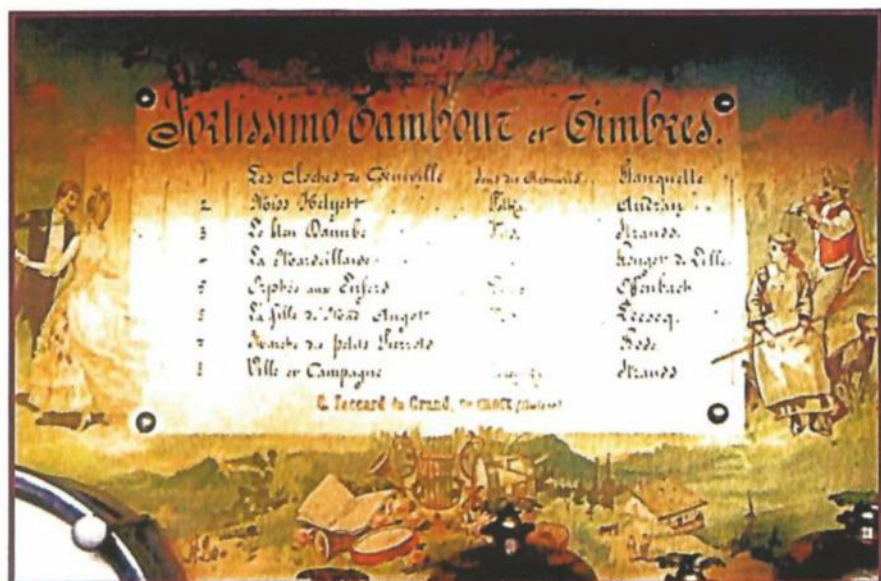 Fortissimo Tambour et Timbres.
Les Cloches de Planquette
2 Miss Helyett Polka Audran
3 Le bleu Danube Strauss.
La Marseillaise Rouget de Lille.
Orphée aux Enfers Offenbach
La fille de Mad Angot Lecocq.
Marche des petits Pierrots Bosc
8 Ville et Campagne Strauss
Jaccard du Grand, Ste CROIX (Suisse)